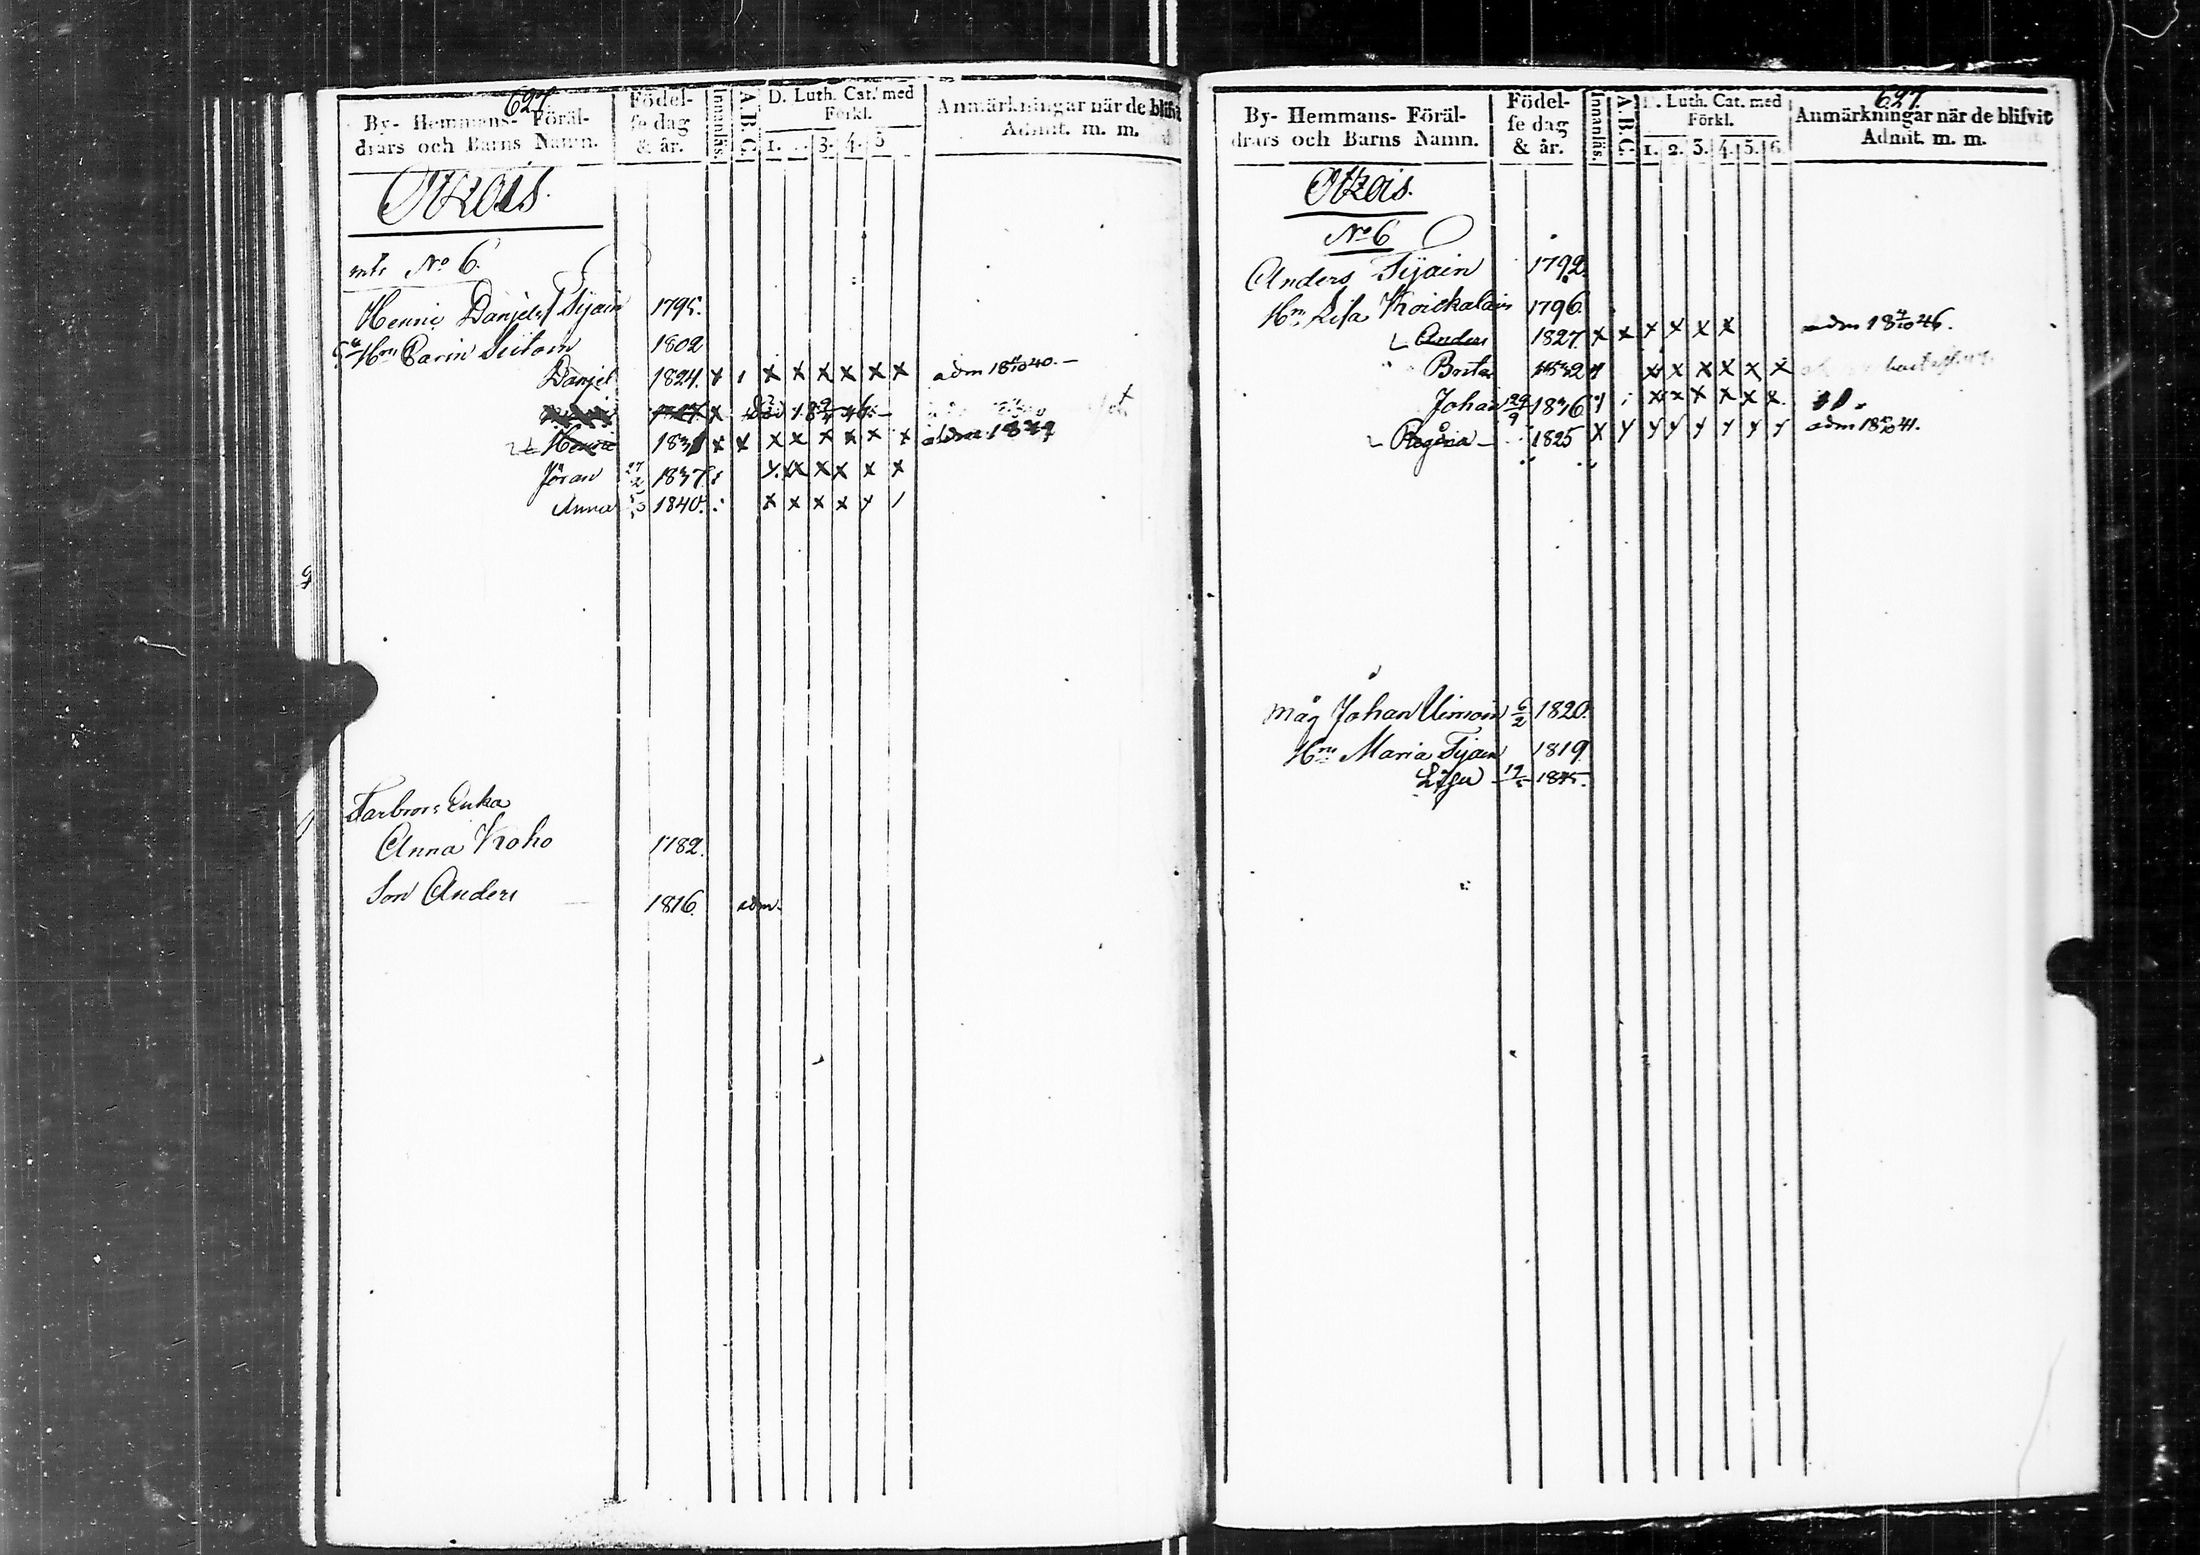 624
By- Hemmans- Föräl-
drars och Barns Namn.
Födel-
se dag
& år.
Innanläs.
A.B.C.
D. Luth. Cat. med
Förkl.
1. 3. 4. 5
Anmärkningar när de blifvi
Admit. m. m.
Otzois.
No 6.
Henric Daniels Tijain 1795.
Hru Carin 1802
Daniel 1824. x x x x x x x adm 18 40.
x död 18 46
Henric 183 x x x x x x x x adm 1849
Jöran 27/2 1837. x x x x x x
Anna 1840. x x x x x
Farbrors Enka
Anna Koho 1782.
Son Anders 1816. adm.
627.
By- Hemmans- Föräl-
drars och Barns Namn.
Födel-
se dag
& år.
Innanläs.
A.B.C.
D. Luth. Cat. med
Förkl.
1. 2. 3. 4. 5. 6.
Anmärkningar när de blifvit
Admit. m. m.
Otzois.
No 6
Anders Tijain 1792.
Hru Lisa Koickalain 1796.
Anders 1827. x x x x x x adm 18 46.
Brita 1832 x x x x x x
Johan 29/9 1836 x x x x x x
Regina 1825 x x x x x x x x adm 18 41.
Måg Johan Uimoin 6/2 1820.
Hru Maria Tijain 1819.
1845.